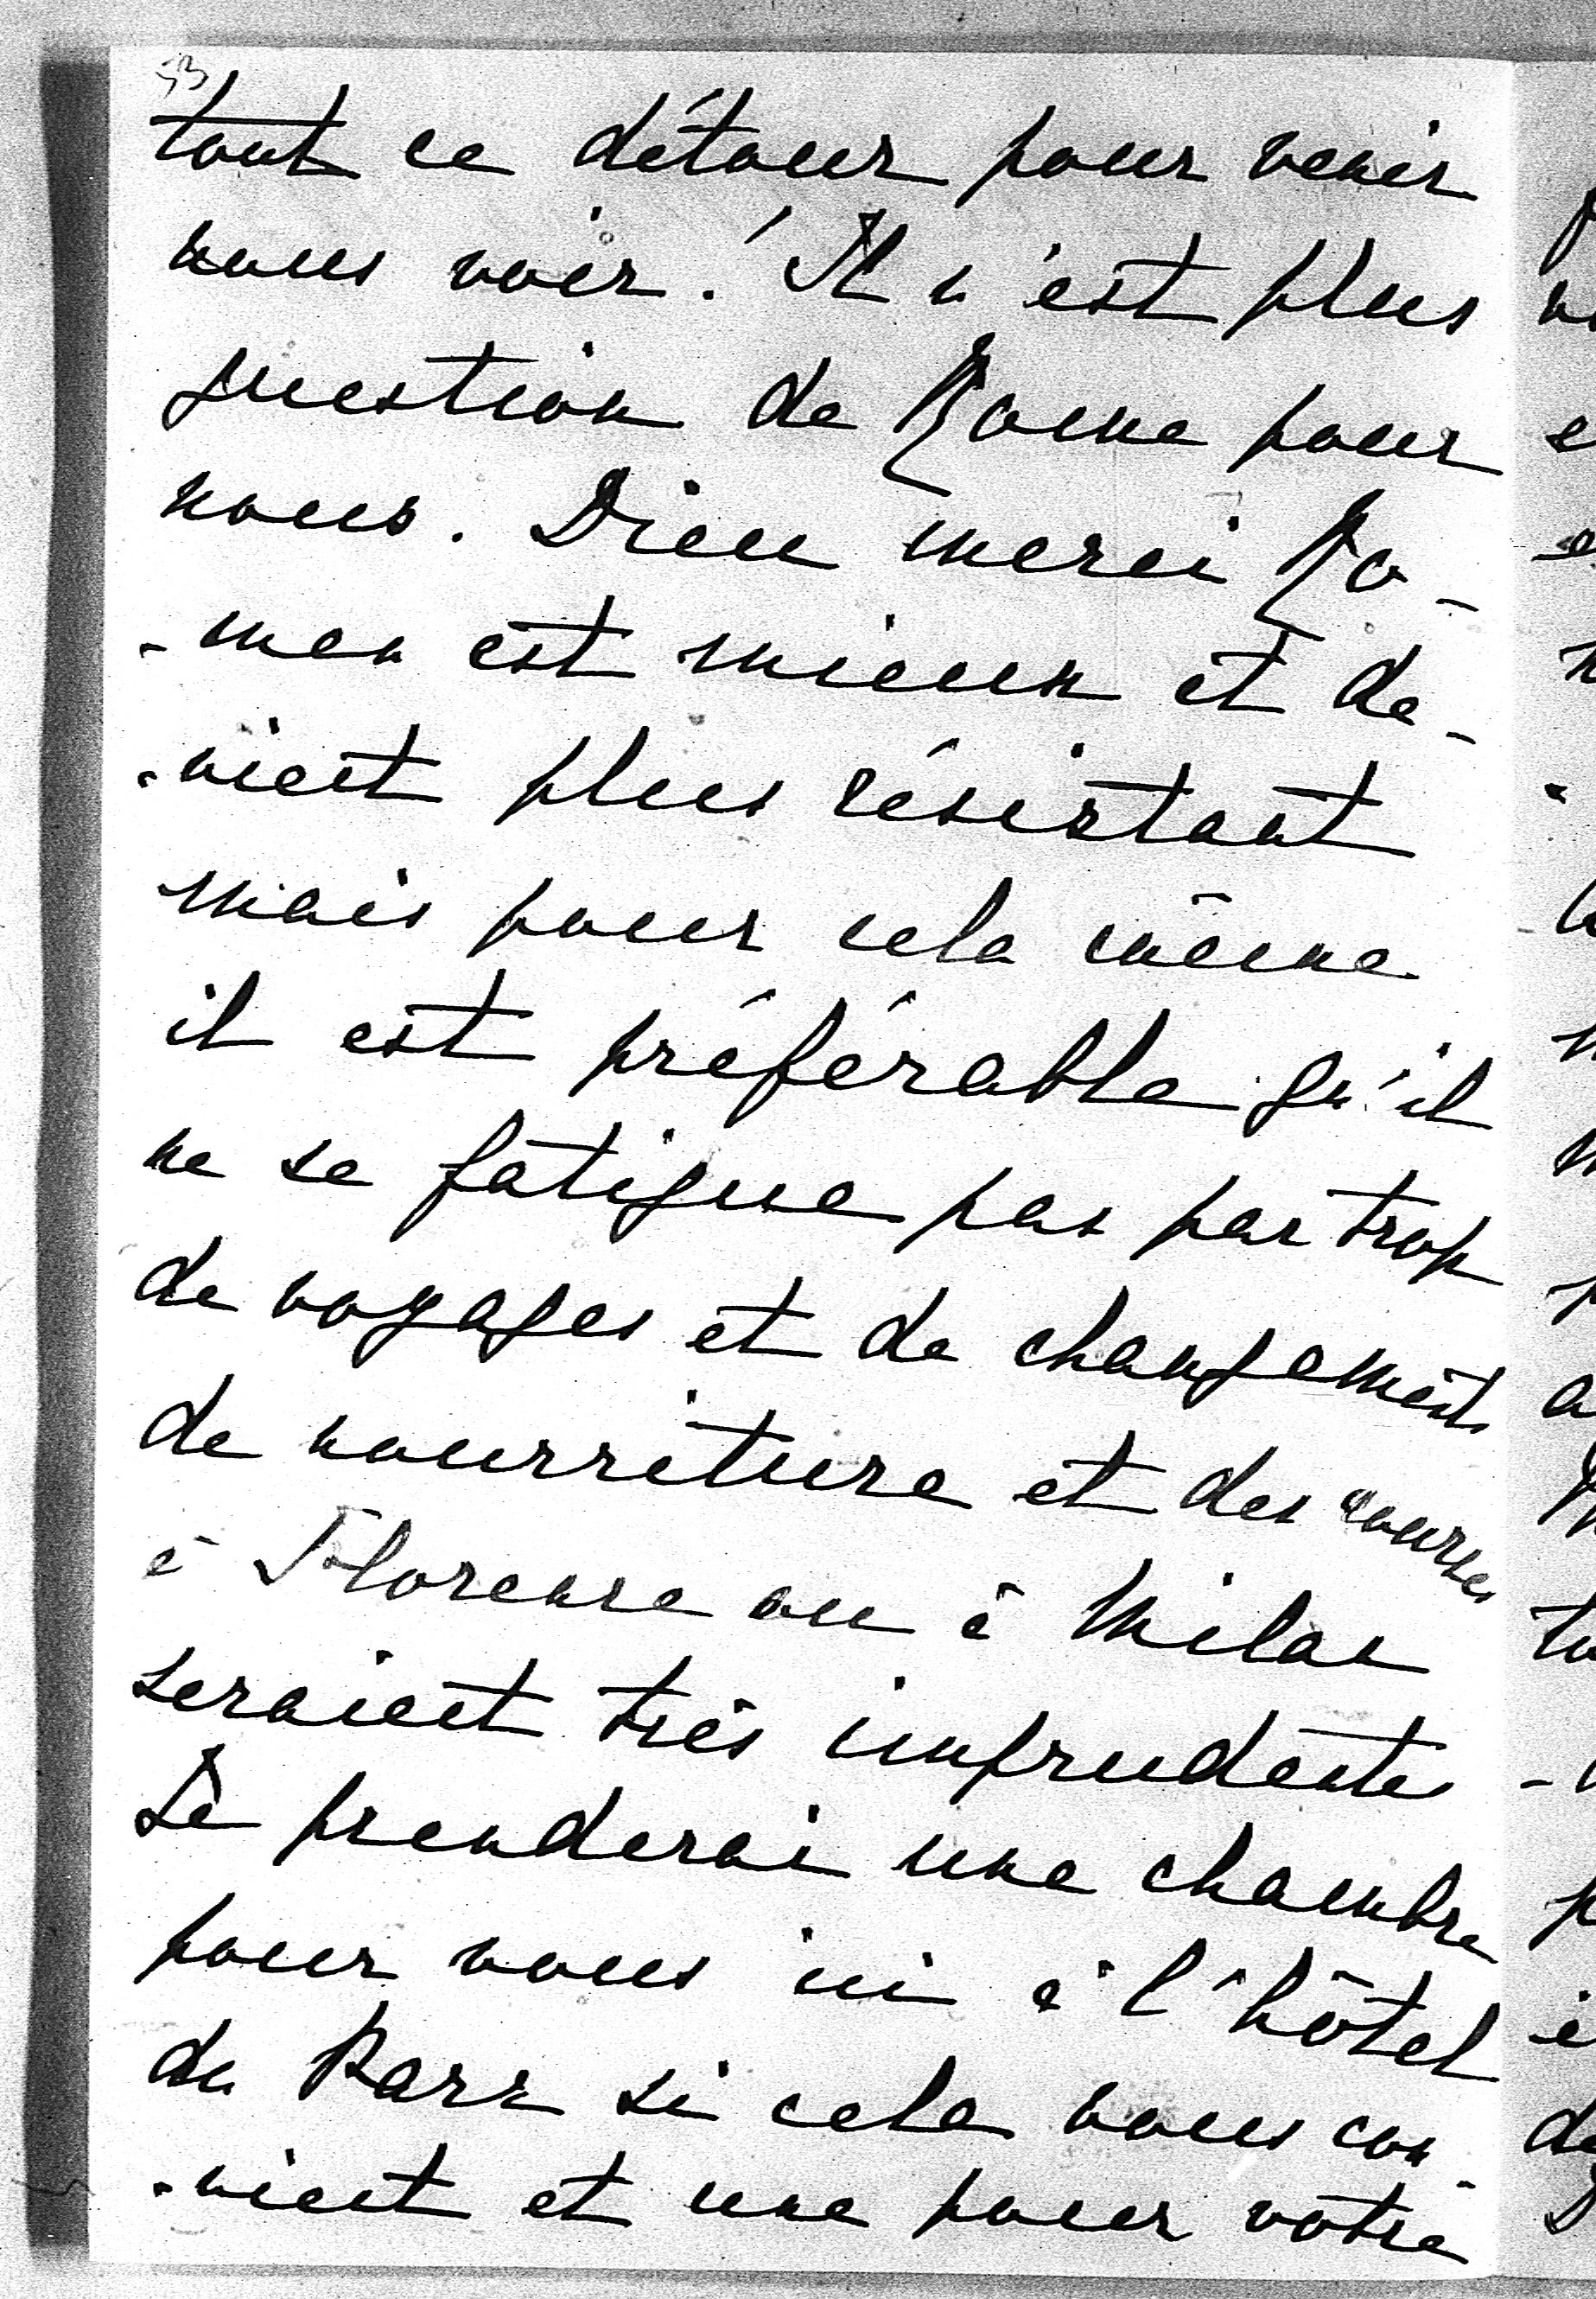 53
tout ce détour pour venir
nous voir! Il n'est plus
question de Rome pour
nous. Dieu merci Ro-
-man est mieux et de-
-vient plus résistant
mais pour cela même
il est préférable qu'il
ne se fatigue pas par trop
de voyages et de changements
de nourriture et des courses
à Florence ou à Milan
seraient très imprudentes
Je prenderai une chambre
pour vous ici à l'hôtel
du Parc si cela vous con-
-vient et une pour votre